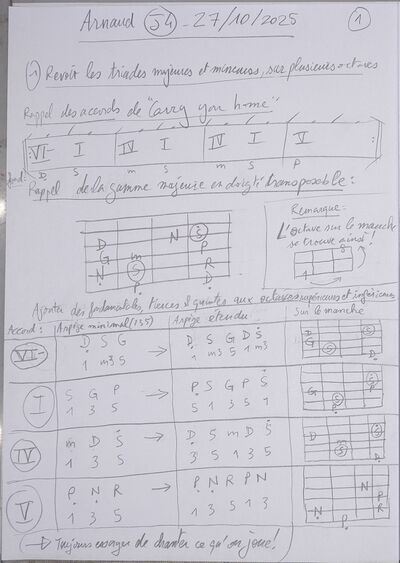 Arnaud 54 - 27/10/2025 1
1 Revoir les triades majeures et mineures, sur plusieurs octaves
Rappel des accords de "Carry you home"
VI- I IV I IV I V
D S m S m S P
Rappel de la gamme majeure en doigté transposable :
Remarque :
L'octave sur le manche
se trouve ainsi :
1 8
N Ṡ
D P
G m R
N S D
Ajouter des fondamentales, tierces & quintes aux octaves supérieures et inférieures
Accord : Arpège minimal (135) Arpège étendu Sur le manche
VI- D S G → D S G D Ṡ
1 m3 5 1 m3 5 1 m3
I S G P → P S G P Ṡ
1 3 5 5 1 3 5 1
IV m D Ṡ → D S m D Ṡ
1 3 5 3 5 1 3 5
V P N R → P N R P N
1 3 5 1 3 5 1 3
→ Toujours essayer de chanter ce qu'on joue !